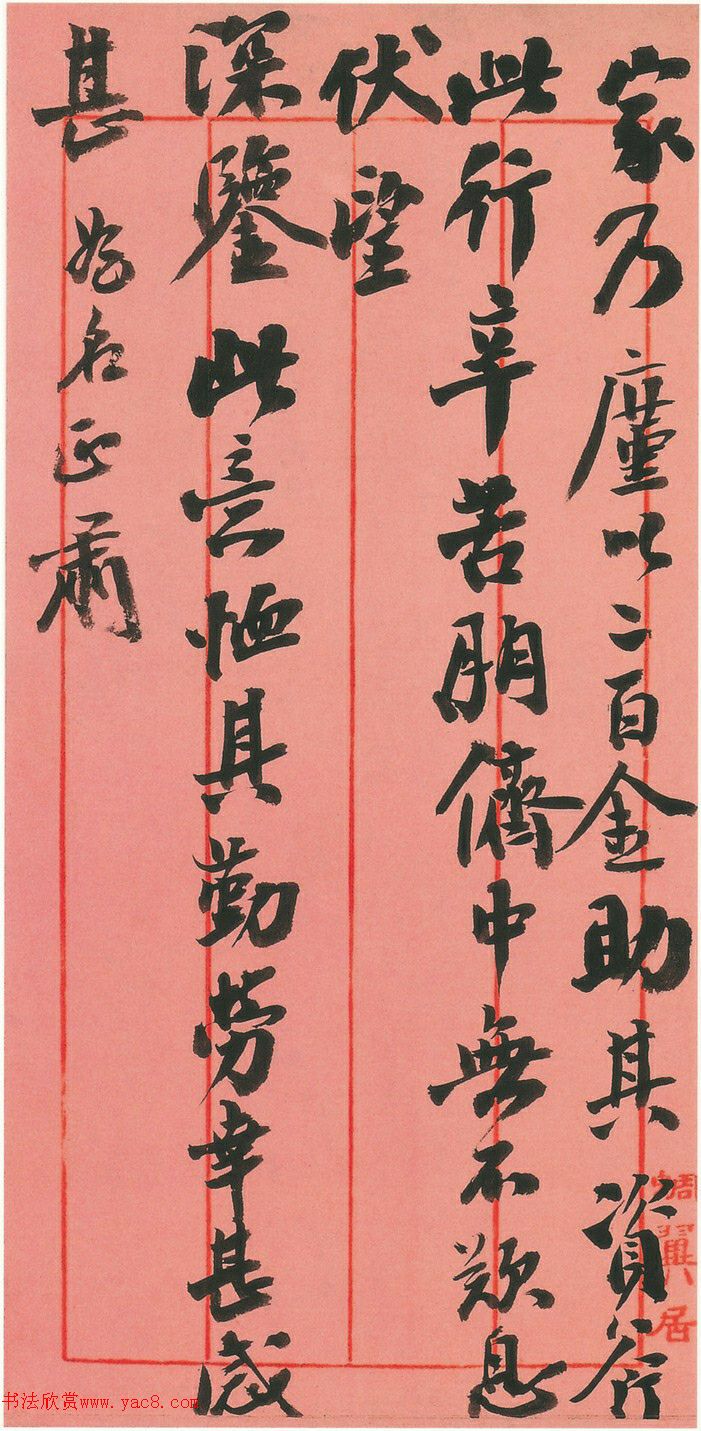 家乃廑以二百金助其資斧
此行辛苦朋儕中無不歎息
伏望
深鑒此意恤其勤勞幸甚感
甚名正肅
蜩翼居
书法欣赏www.yac8.com